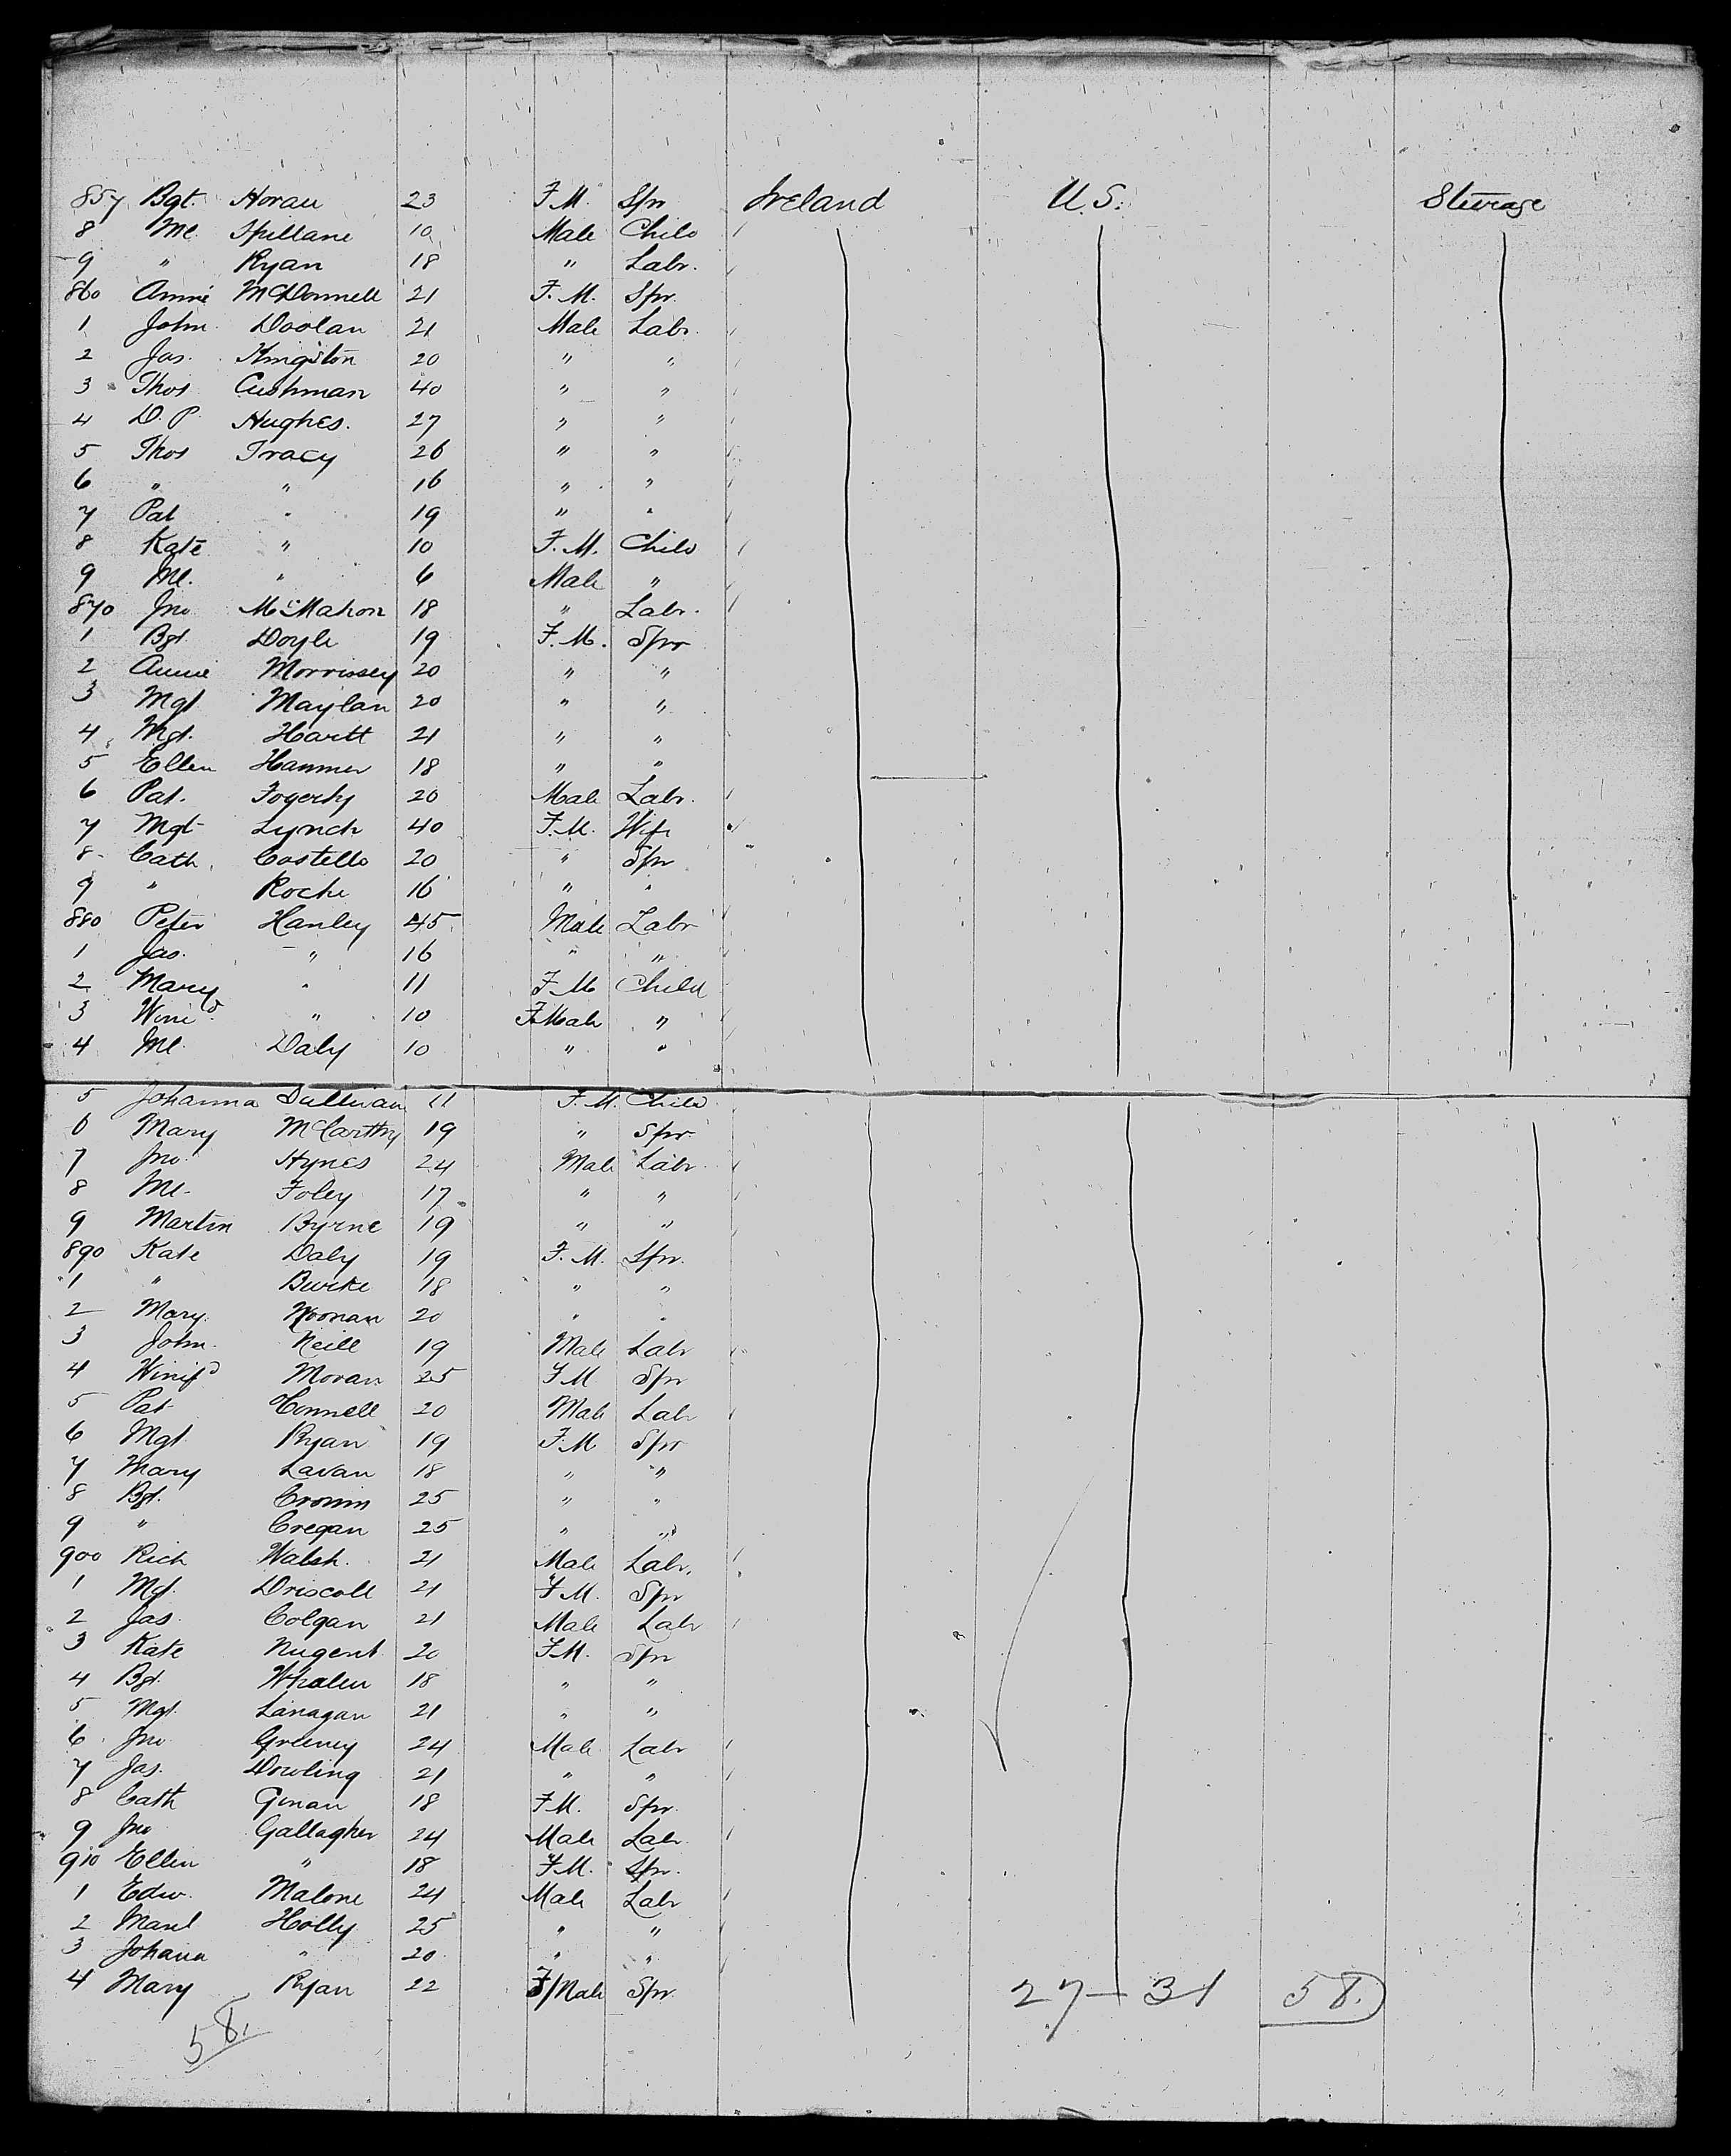 857 Bgt. Horan 23 F.M. Spr Ireland U.S. Steerage
8 Ml. Spillane 10 Male Child
9 " Ryan 18 " Labr.
860 Annie McDonnell 21 F.M. Spr.
1 John Doolan 21 Male Labr.
2 Jas. Kingston 20 " "
3 Thos Cushman 40 " "
4 D. P. Hughes. 27 " "
5 Thos Tracy 26 " "
6 " " 16 " "
7 Pat " 19 " "
8 Kate " 10 F.M. Child
9 Ml. " 6 Male "
870 Jno McMahon 18 " Labr.
1 Bgt. Doyle 19 F.M. Spr
2 Annie Morrissey 20 " "
3 Mgt Maylan 20 " "
4 Mgt. Hartt 21 " "
5 Ellen Hanmer 18 " "
6 Pat. Fogerty 20 Male Labr.
7 Mgt Lynch 40 F.M. Wife
8 Cath. Costello 20 " Spr
9 " Roche 16 " "
880 Peter Hanley 45 Male Labr
1 Jas. " 16 " "
2 Mary " 11 F.M. Child
3 Winid " 10 F.Male "
4 Ml. Daly 10 " "
5 Johanna Sullivan 11 F.M. Child
6 Mary McCarthy 19 " Spr.
7 Jno. Hynes 24 Male Labr.
8 Ml. Foley 17 " "
9 Martin Byrne 19 " "
890 Kate Daly 19 F.M. Spr.
1 " Burke 18 " "
2 Mary Noonan 20 " "
3 John Neill 19 Male Labr
4 Winifd Moran 25 F.M Spr
5 Pat Connell 20 Male Labr
6 Mgt Ryan 19 F.M Spr
7 Mary Lavan 18 " "
8 Bgt. Cronin 25 " "
9 " Cregan 25 " "
900 Rich Walsh. 21 Male Labr.
1 Mgt. Driscoll 21 F.M. Spr
2 Jas. Colgan 21 Male Labr
3 Kate Nugent 20 F.M. Spr
4 Bgt. Whalen 18 " "
5 Mgt. Lanagan 21 " "
6 Jno Greeney 24 Male Labr
7 Jas. Dowling 21 " "
8 Cath 18 F.M. Spr.
9 Jno Gallagher 24 Male Labr.
910 Ellen " 18 F.M. Spr.
1 Edw. Malone 24 Male Labr
2 Holly 25 " "
3 Johana " 20 " "
4 Mary Ryan 22 F/Male Spr.
27 — 31 58.
58.